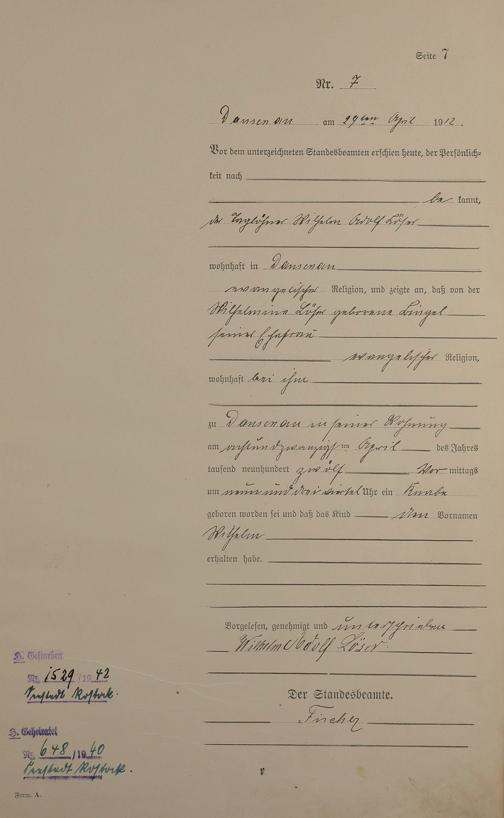 Seite 7
Nr. 7
Dausenau am 29ten April 1912.
Vor dem unterzeichneten Standesbeamten erschien heute, der Persönlich-
keit nach
be kannt,
der Taglöhner Wilhelm Adolf Löser
wohnhaft in Dausenau
evangelischer Religion, und zeigte an, daß von der
Wilhelmina Löser geborene Lingel
seiner Ehefrau
evangelischer Religion,
wohnhaft bei ihm
zu Dausenau in seiner Wohnung
am achtundzwanzigsten April des Jahres
tausend neunhundert zwölf Vor mittags
um neun und drei viertel Uhr ein Knabe
geboren worden sei und daß das Kind den Vornamen
Wilhelm
erhalten habe.
Vorgelesen, genehmigt und unterschrieben
Wilhelm Adolf Löser
Der Standesbeamte.
Fischer
H.
Nr. 1529/1942
Seestadt Rostock.
H. Geheiratet
Nr. 648/1940
Seestadt Rostock.
Form. A.